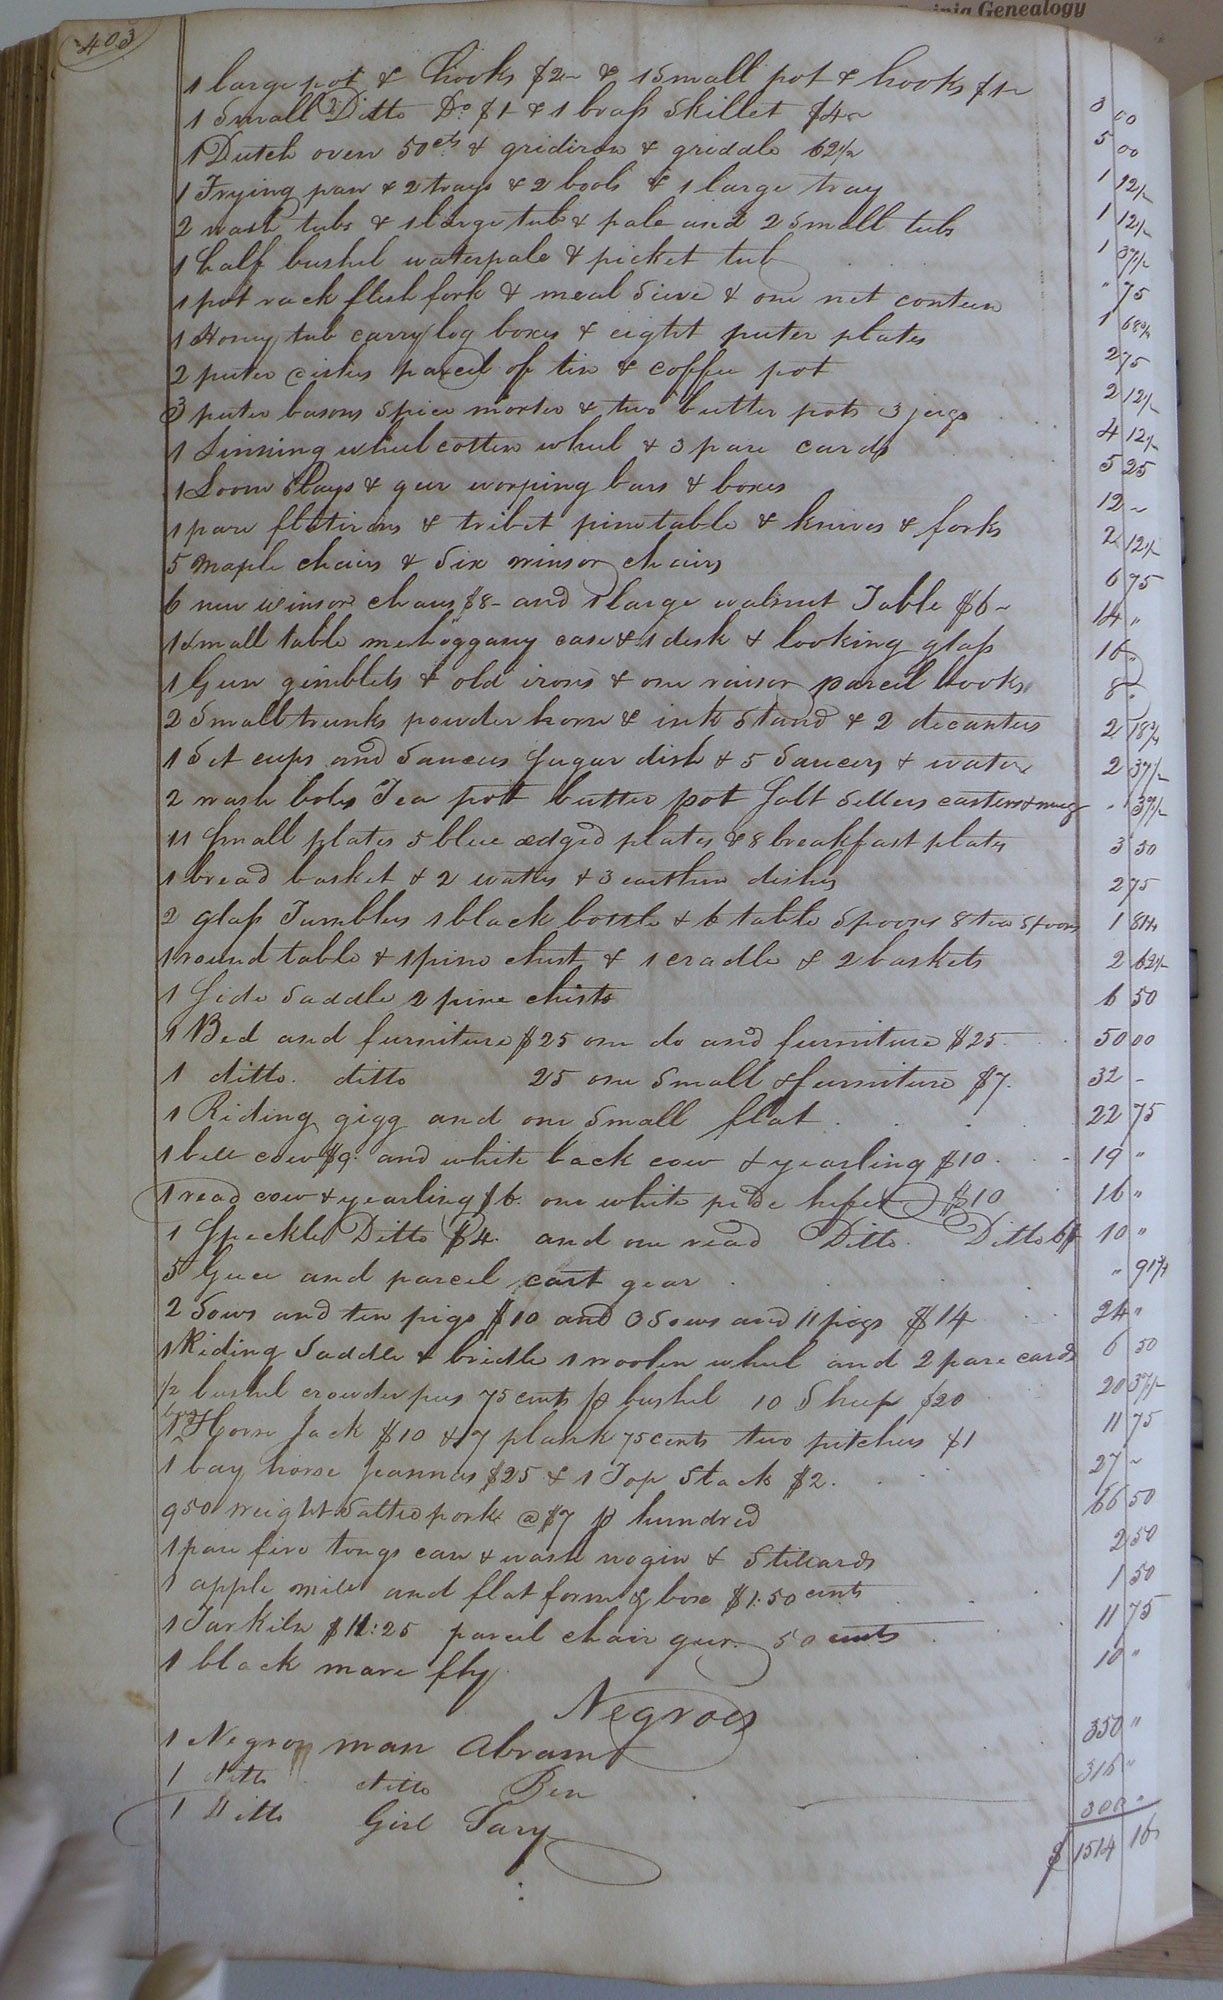 403
Genealogy
1 large pot & hooks $2 - & 1 Small pot & hooks $1- 3 00
1 Small Ditto Do. $1 & 1 brass Skillet $4 - 5 00
1 Dutch oven 50cts & gridiron & griddle 62½ 1 12½
1 Frying pan & 2 trays & 2 bools & 1 large tray 1 12½
2 wash tubs & 1 large tub & pale and 2 Small tubs 1 37½
1 half bushel waterpale & picket tub " 75
1 pot rack flesh fork & meal Sieve & one net conteen 1 68¾
1 Honey tub carry log boxes & eight puter plates 2 75
2 puter dishes parcel of tin & coffee pot 2 12½
3 puter basons Spice morter & two butter pots 3 jergs 4 12½
1 Linning wheel cotten wheel & 3 pare cards 5 25
1 Loom Slays & gear worping bars & boxes 12 -
1 pare flatirons & tribet pine table & knives & forks 2 12½
5 maple chairs & Six winsor chairs 6 75
6 new winsor chairs $8 - and 1 large walnut Table $6 - 14 "
1 Small table mehoggany case & 1 desk & looking glass 16 "
1 Gun gimblets & old irons & one raisor parcel books 8 "
2 Small trunks powder horn & ink Stand & 2 decanters 2 18¾
1 Set cups and Saucers Sugar dish & 5 Saucers & waters 2 37½
2 wash boles Tea pott butter pot Salt Sellers casters & mug " 37½
11 Small plates 5 blue edged plates & 8 breakfast plates 3 50
1 bread basket & 2 waters & 3 earthen dishes 2 75
2 glass Tumblers 1 black bottle & 6 table Spoons 8 tea Spoons 1 81¼
1 round table & 1 pine chest & 1 cradle & 2 baskets 2 62½
1 Side Saddle 2 pine chists 6 50
1 Bed and furniture $25 one do and furniture $25 50 00
1 ditto ditto 25 one Small & furniture $7. 32 -
1 Riding gigg and one Small flat 22 75
1 bell cow $9. and white back cow & yearling $10 19 "
1 read cow & yearling $6. one white pide hefer $10 16 "
1 Speckle Ditto $4. and one read Ditto Ditto 6$ 10 "
5 Geece and parcel cart gear " 91¾
2 Sows and ten pigs $10 and 3 Sows and 11 pigs $14 24 "
1 Riding Saddle & bridle 1 woolen wheel and 2 pare cards 6 50
½ bushel crowder pees 75 cents p bushel 10 Sheep $20 20 37½
1 Horse Jack $10 & 17 plank 75 cents two pitchers $1 11 75
1 bay horse $25 & 1 Top Stack $2. 27 -
950 weight Salted pork @ $7 p hundred 66 50
1 pare fire tongs can & wash nogin & Stillards 2 50
1 apple mill and flat form & box $1:50 cents 1 50
1 Tarkiln $11:25 parcel chair gear. 50 cents 11 75
1 black mare fly 10 "
Negroes
1 Negroy man Abram 350 "
1 ditto ditto Ben 316 "
1 Ditto Girl Sary 300 "
$ 1514 16